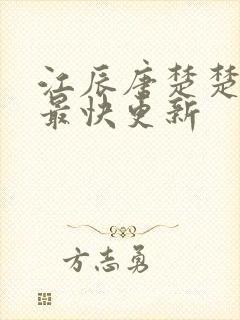 江辰唐楚楚
最快更新
方志勇